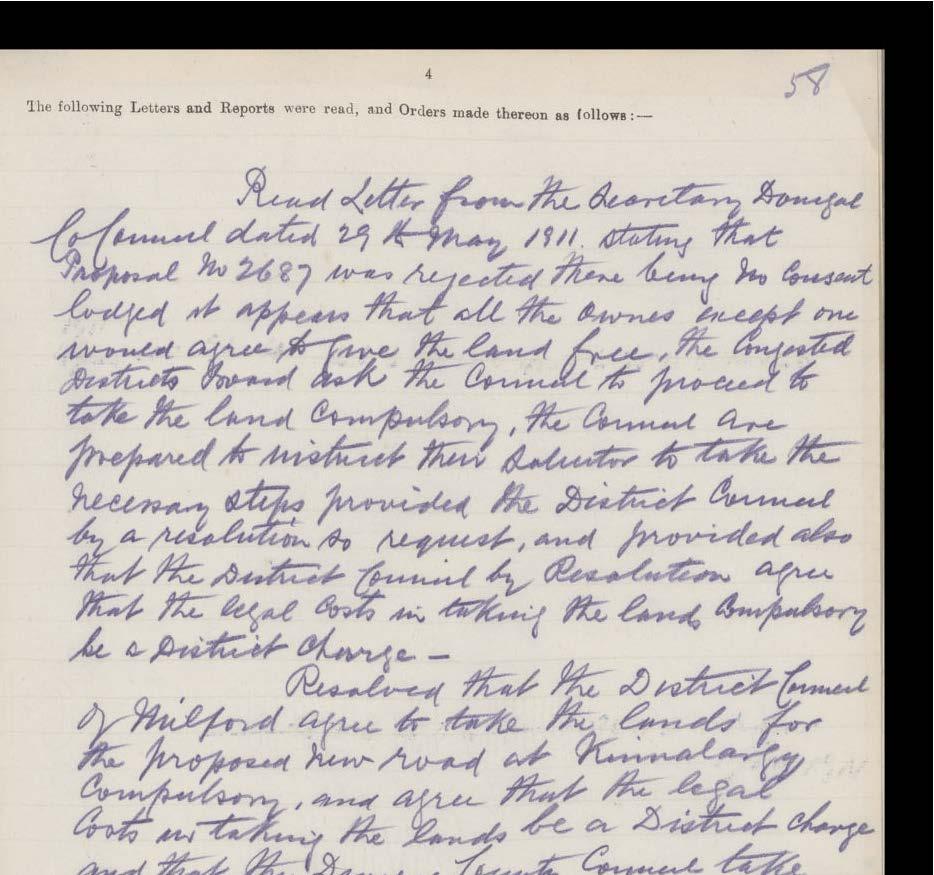 4
58
The following Letters and Reports were read, and Orders made thereon as follows:—
Read Letter from the Secretary Donegal
Co Council dated 29th May 1911. stating that
Proposal No 2687 was rejected there being no Consent
lodged it appears that all the Ownes except one
would agree to give the land free, the Congested
Districts Board ask the Council to proceed to
take the land Compulsory, the Council are
prepared to instruct their Solicitor to take the
necessary steps provided the District Council
by a resolution so request, and provided also
that the District Council by Resolution agree
that the legal Costs in taking the lands Compulsory
be a District Charge —
Resolved that the District Council
of Milford agree to take the lands for
the proposed new road at Kinnalargy
Compulsory, and agree that the legal
Costs in taking the lands be a District Charge
and that the County Council take